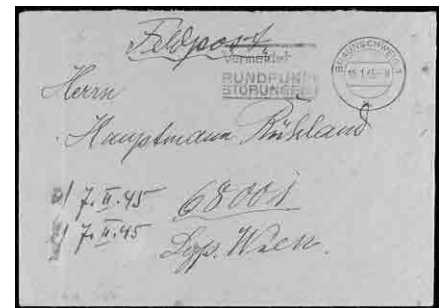 Feldpost
vermeidet
RUNDFUNK
STÖRUNGEN
BRAUNSCHWEIG
15.1.45-8
Herrn
Hauptmann Rühland
e/ 7.II.45
e/ 7.II.45
68001
Lgp. Wien.